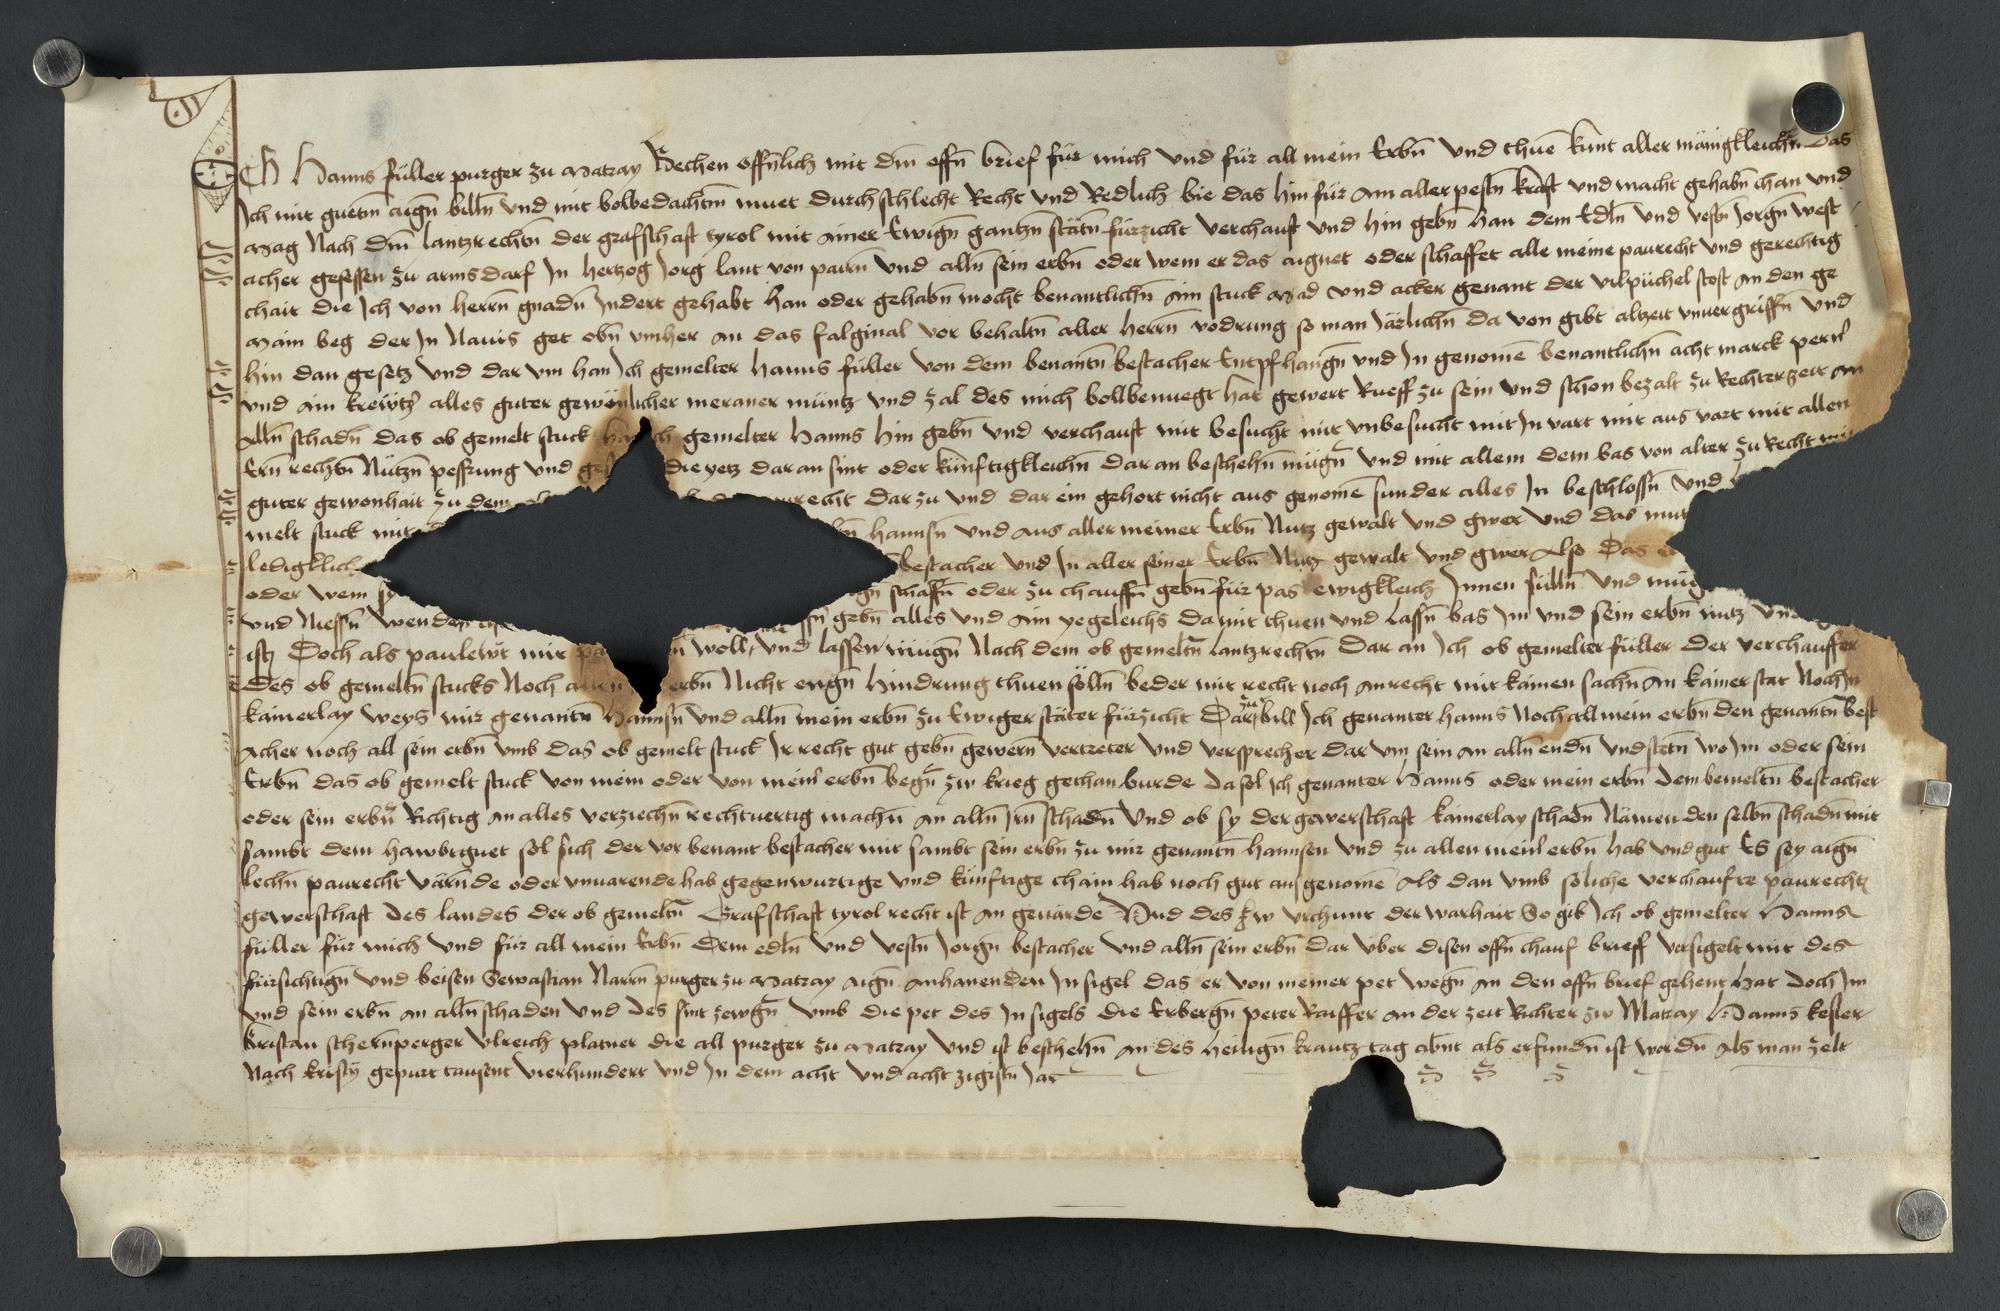 Ich Hanns füller purger zu Matray Vechen offnlich mit dm offn brief für mich und für all mein Erbn Und thue kunt aller mänigkleichn das
Ich mit guetm aign billn Und mit bolbedachtm muet durchschlecht Recht Und Redlich bie das hin für Am aller pestn kraft Und macht gehabn chan Und
Mag Nach dm lantzrechtn der grafschaft tyrol mit Ainer Ewign gantzn stätn fürzicht Verchauft Und hin gebn han dem Edln Und Vestn Jorgn West
acher gesessen zu armsdarf In hertzog Jorg lant von pairn Und alln sein erbn oder wem er das aignet oder schaffet alle meine paurecht Und gerechtig
chait die Ich von herrn gnadn Indert gehabt han oder gehabn mocht benantlichn Ain stuck Mad Und acker genant der Vilpüchel stost An den ge
Main beg der In Nauis get obn umher An das falginal vor behaltn aller herrn vodrung so man Järlichn da von gibt altzeit unuergriffn Und
hin dan gesetz Und dar um han Ich gemelter hanns füller Von dem benantn bestacher Entpfhangn Und In genome benantlichn acht marck pern
Und Ain krewtz alles guter gewonlicher meraner müntz Und zal des mich bollbenuegt hat gewert Rueff zu sein Und schon bezalt zu Rechter zeit An
Alln schadn das ob gemelt stuck gemelter Hanns hin gebn Und verchauft mit besucht mit Unbesucht mit In vart mit aus vart mit allen
Ern rechtn Nützn pessrung Und die yetz dar an sint oder künftigkleichn dar an beschehn mügn Und mit allem dem bas von alter zu Recht
guter gewonhait zu dem recht dar zu Und dar ein gehort nicht aus genome sunder alles In beschlossn Und
melt stuck mit hannsn Und Aus aller meiner Erbn Nutz gewalt Und gwer Und das
ledigklich bestacher Und In aller seiner Erbn Nutz gewalt Und gwer Also Das
oder wem sy schaffn oder zu chauffn gebn für pas ewigkleich Innen sülln Und
Und Niessn wenden gebn alles Und Ain yegeleichs da mit thuen Und Lassn bas Im Und sein erbn nutz
ist Doch als paulewt mit woll, Und lassen mügn Nach dem ob gemeltn lantzrechtn Dar an Ich ob gemelter füller der verchauffer
des ob gemeltn stucks Noch erbn Nicht engn hindrung thuen sölln beder mit recht noch Anrecht mit kainen sachn An kainer stat Noch In
kainerlay weys mir genantn Hannsn Und alln mein erbn zu Ewiger stäter fürzicht Dar zu bill Ich genanter hanns Noch all mein erbn den genantn best
Acher noch all sein erbn Umb das ob gemelt stuck Ir recht gut gebn gewern vertreter Und versprecher dar um sein An alln endn Und stetn wo Im oder sein
Erbn das ob gemelt stuck von mein oder von mein erbn begn zw krieg gethan burde da sol Ich genanter Hanns oder mein erbn dem bemeltn bestacher
oder sein erbn Richtig An alles verziechn rechtuertig machn An alln Irn schadn Und ob sy der gewerschaft kainerlay schadn Nämen den selbn schadn mit
sambt dem hawbtguet sol sich der vor benant bestacher mit sambt sein erbn zu mir genantn hannsen Und zu allen mein erbn hab Und gut Es sey aign
lechn paurecht Värnde oder Unuarende hab gegenwurtige Und künftige chain hab noch gut ausgenome Als dan Umb söliche verchaufte paurecht
gewerschaft Des landes der ob gemeltn Grafschaft tyrol recht ist An geuärde Und des zw Urchunt der warhait So gib Ich ob gemelter Hanns
füller für mich Und für all mein Erbn Dem edln Und Vestn Jorgn bestacher Und alln sein erbn dar Über disen offn chauf brieff versigelt mit des
fürsichtign Und beisen Sewastian Narrn purger zu Matray Aign Anhanenden In sigel das er von meiner pet wegn An den offn brief gehent hat doch Im
Und sein erbn An alln schaden Und des sint zewgn Umb die pet des In sigels die Erbergn peter Raiffer An der zeit Richter zw Matray Hanns kesler
kristan schernperger Ulreich platner die all purger zu Matray Und ist beschehn An des heilign krautz tag abnt als erfundn ist wordn Als man zelt
Nach kristy gepurt tausent vierhundert Und In dem acht Und acht zigistn Jar